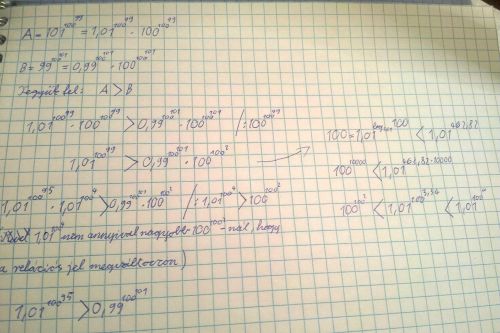 A = 101^100^99 = 1,01^100^99 · 100^100^99
B = 99^100^101 = 0,99^100^101 · 100^100^101
Tegyük fel: A > B
1,01^100^99 · 100^100^99 > 0,99^100^101 · 100^100^101 / : 100^100^99
1,01^100^99 > 0,99^100^101 · 100^100^2
1,01^100^95 · 1,01^100^4 > 0,99^100^101 · 100^100^2 / : 1,01^100^4 > 100^100^2
1,01^100^4 nem annyival nagyobb 100^100^2-nál, hogy
a relációs jel megváltozzon)
1,01^100^95 > 0,99^100^101
100 = 1,01^log_1,01 100 < 1,01^463,82
100^10000 < 1,01^463,82·10000
100^100^2 < 1,01^100^3,34 < 1,01^100^4